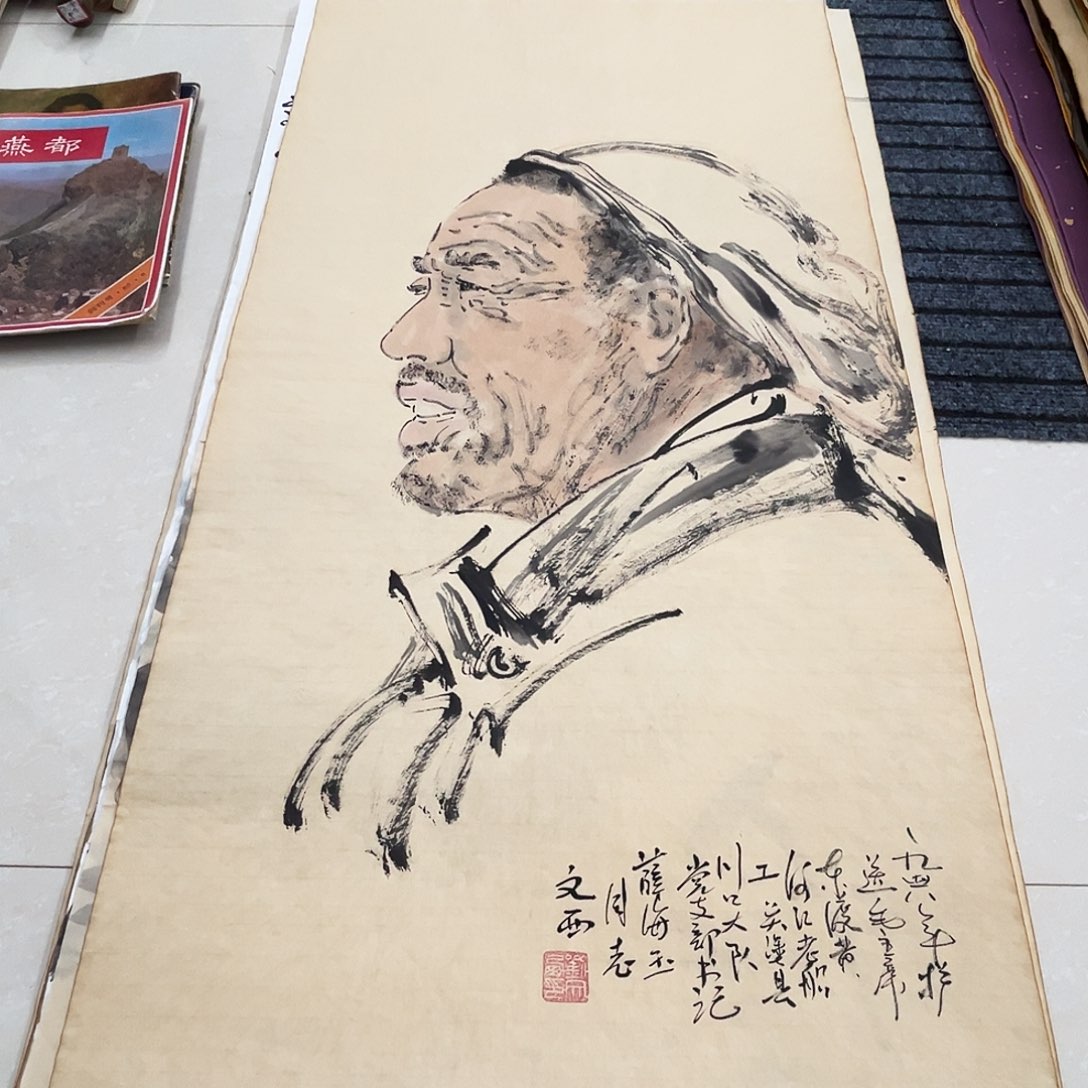 燕都
一九四八年护
送毛主席
东渡黄
河的老船
工 吴堡县
川口大队
党支部书记
薛海玉
同志
文西